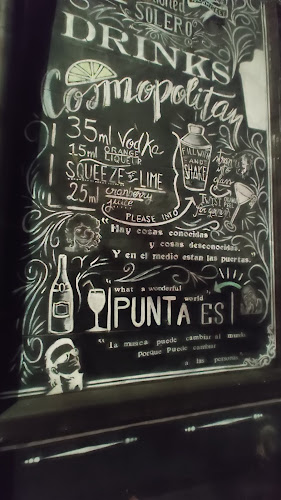 SOLERO
DRINKS
Cosmopolitan
35ml Vodka
15ml ORANGE LIQUEUR
SQUEEZE OF LIME
25ml cranberry juice
PLEASE INTO
FILL WITH
AND
SHAKE
strain
into
glass
TWIST
"Hay cosas conocidas
y cosas desconocidas.
Y en el medio estan las puertas."
"what a wonderful world"
PUNTA ES
"la musica puede cambiar al mundo
porque puede cambiar
a las personas"